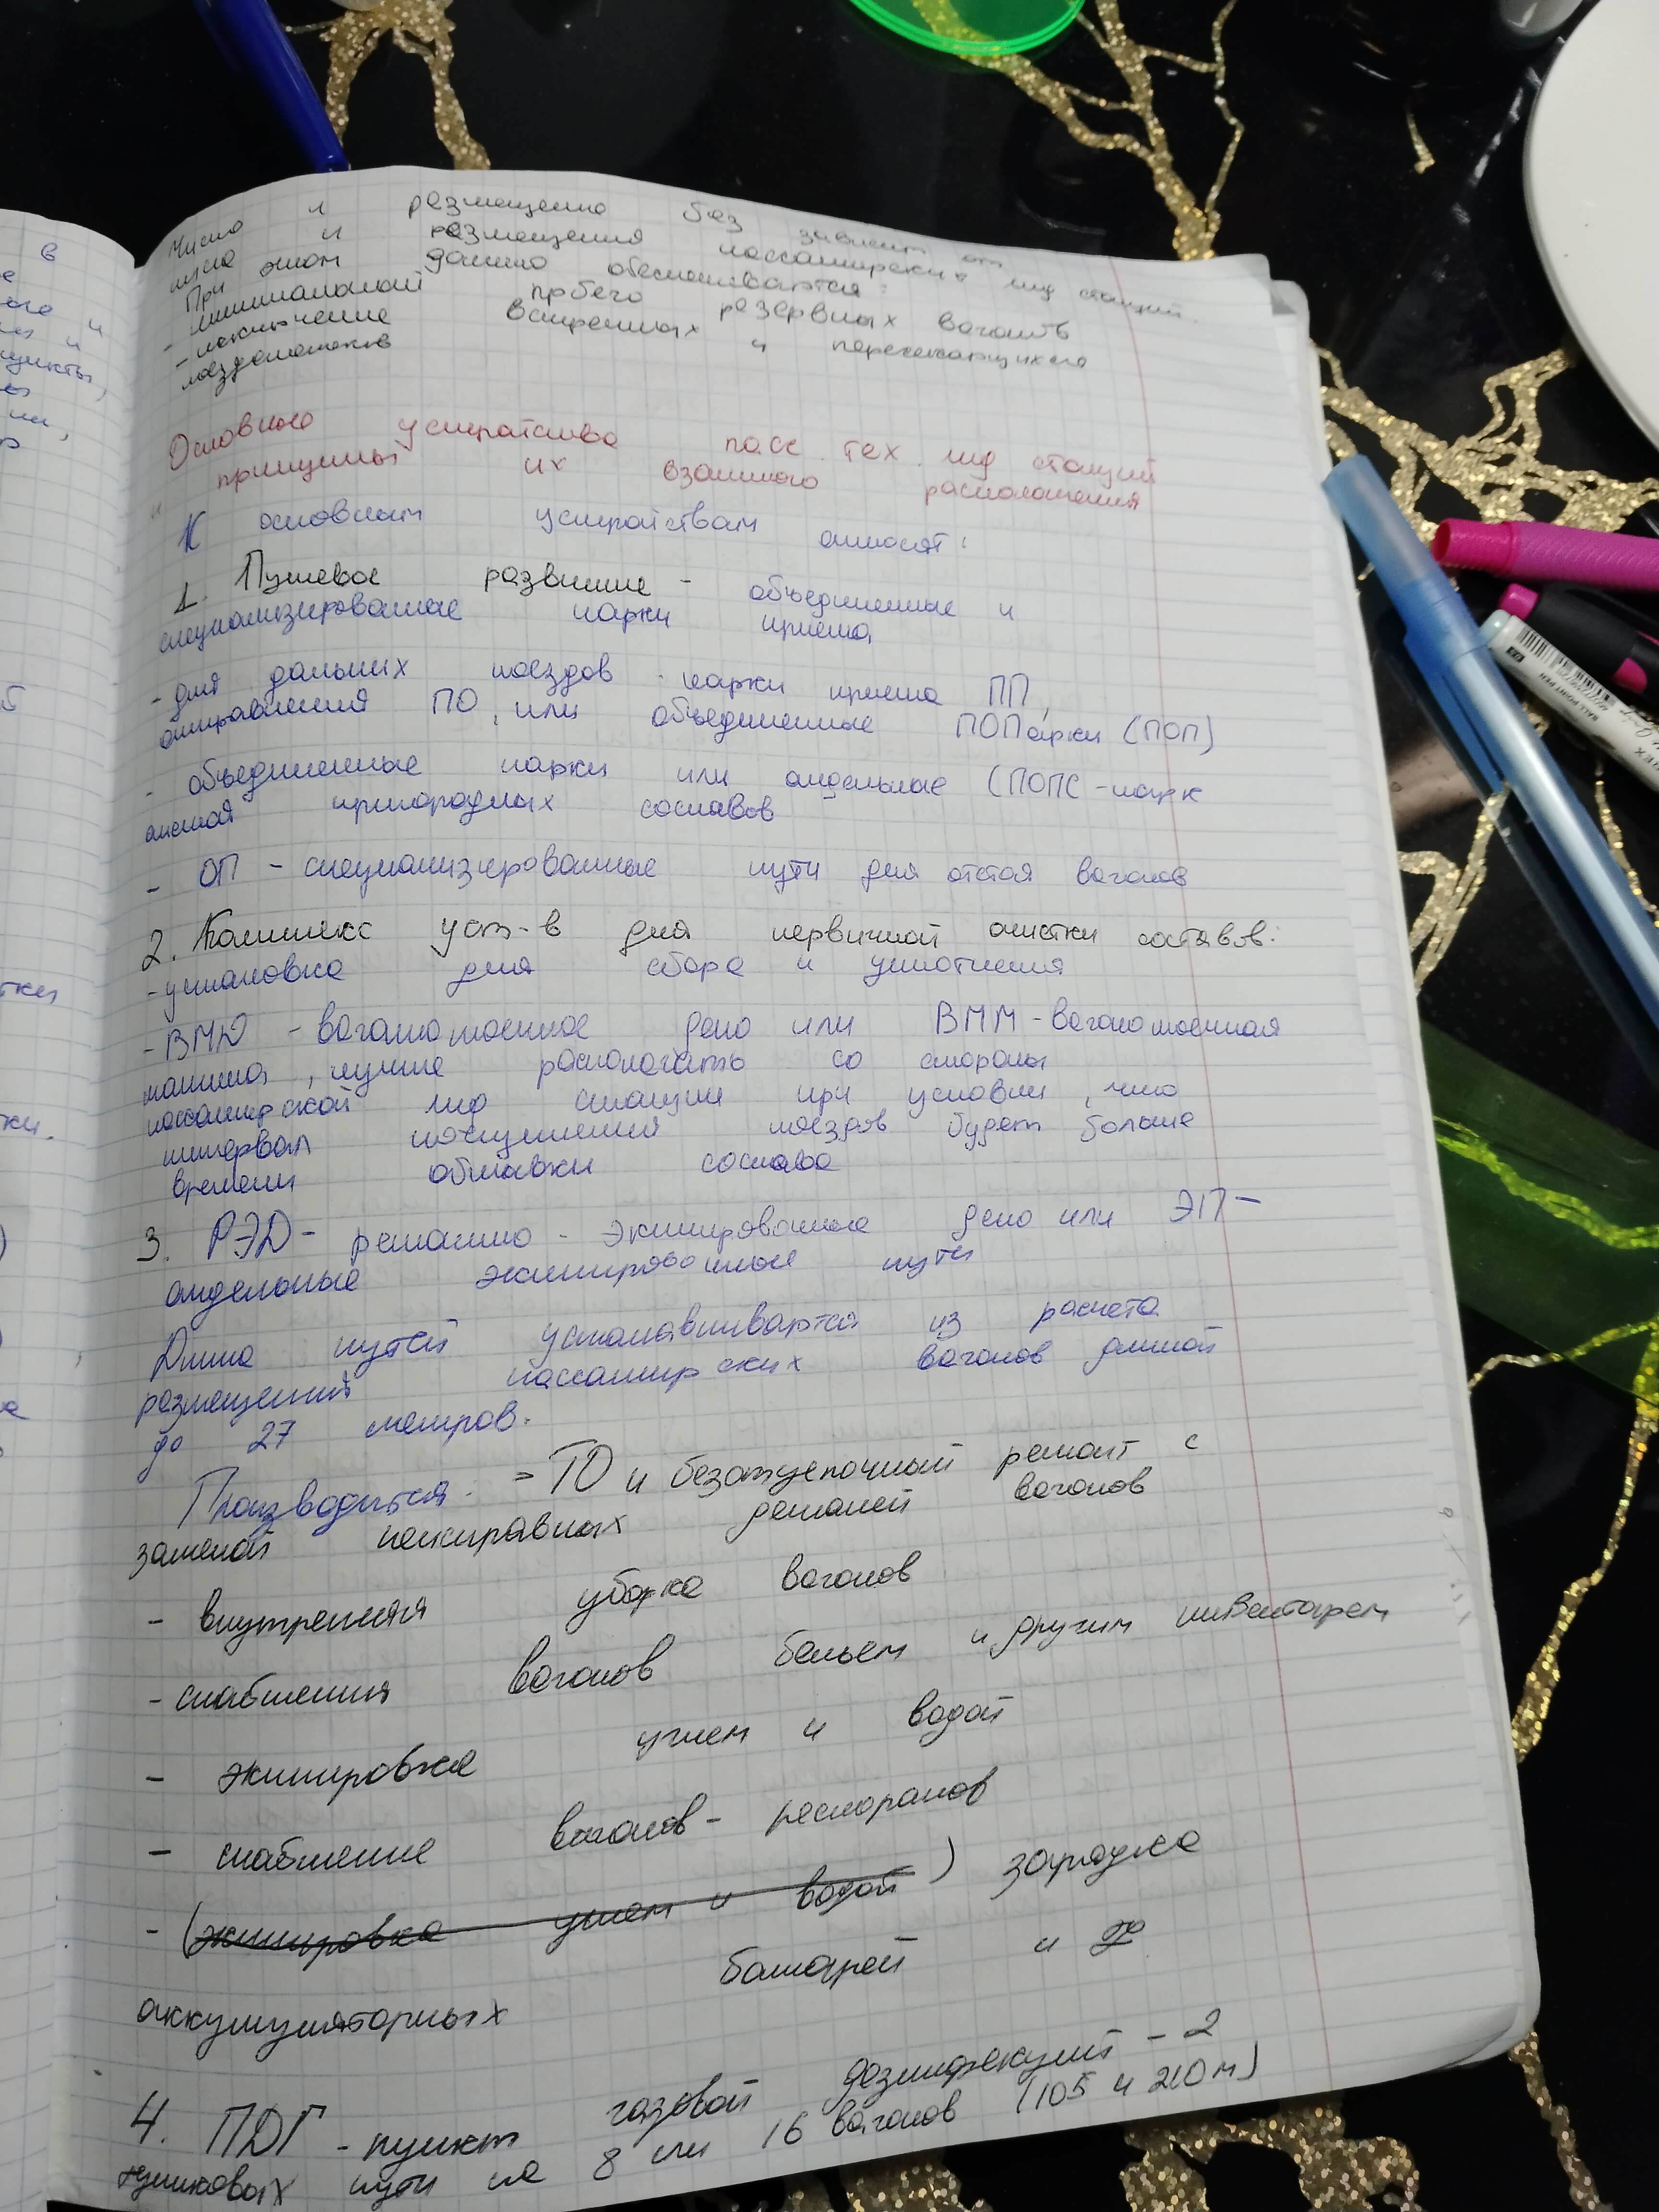 Число и размещение баз зависит от
числа и размещения пассажирских жд станций.
При этом должно обеспечиваться:
- минимальный пробег резервных вагонов
- исключение встречных и пересекающихся
поездопотоков
Основные устройства пасс. тех. жд станций
и принципы их взаимного расположения
К основным устройствам относят:
1. Путевое развитие - объединенные и
специализированные парки приема,
- для дальних поездов - парки приема ПП,
отправления ПО, или объединенные ПОПарки (ПОП)
- объединенные парки или отдельные (ПОПС - парк
отстоя пригородных составов
- ОП - специализированные пути для отстоя вагонов
2. Комплекс уст-в для первичной очистки составов:
- установка для сбора и уплотнения
- ВМД - вагономоечное депо или ВММ - вагономоечная
машина, лучше располагать со стороны
пассажирской жд станции при условии, что
интервал поступления поездов будет больше
времени обмывки состава
3. РЭД - ремонтно - экипировочное депо или ЭП -
отдельные экипировочные пути
Длина путей устанавливается из расчета
размещения пассажирских вагонов длиной
до 27 метров.
Производится: - ТО и безотцепочный ремонт с
заменой неисправных деталей вагонов
- внутренняя уборка вагонов
- снабжения вагонов бельем и другим инвентарем
- экипировка углем и водой
- снабжение вагонов - ресторанов
- (экипировка углем и водой) зарядка
аккумуляторных батарей и
4. ПДГ - пункт газовой дезинфекций - 2
тупиковых пути на 8 или 16 вагонов (105 и 210м)